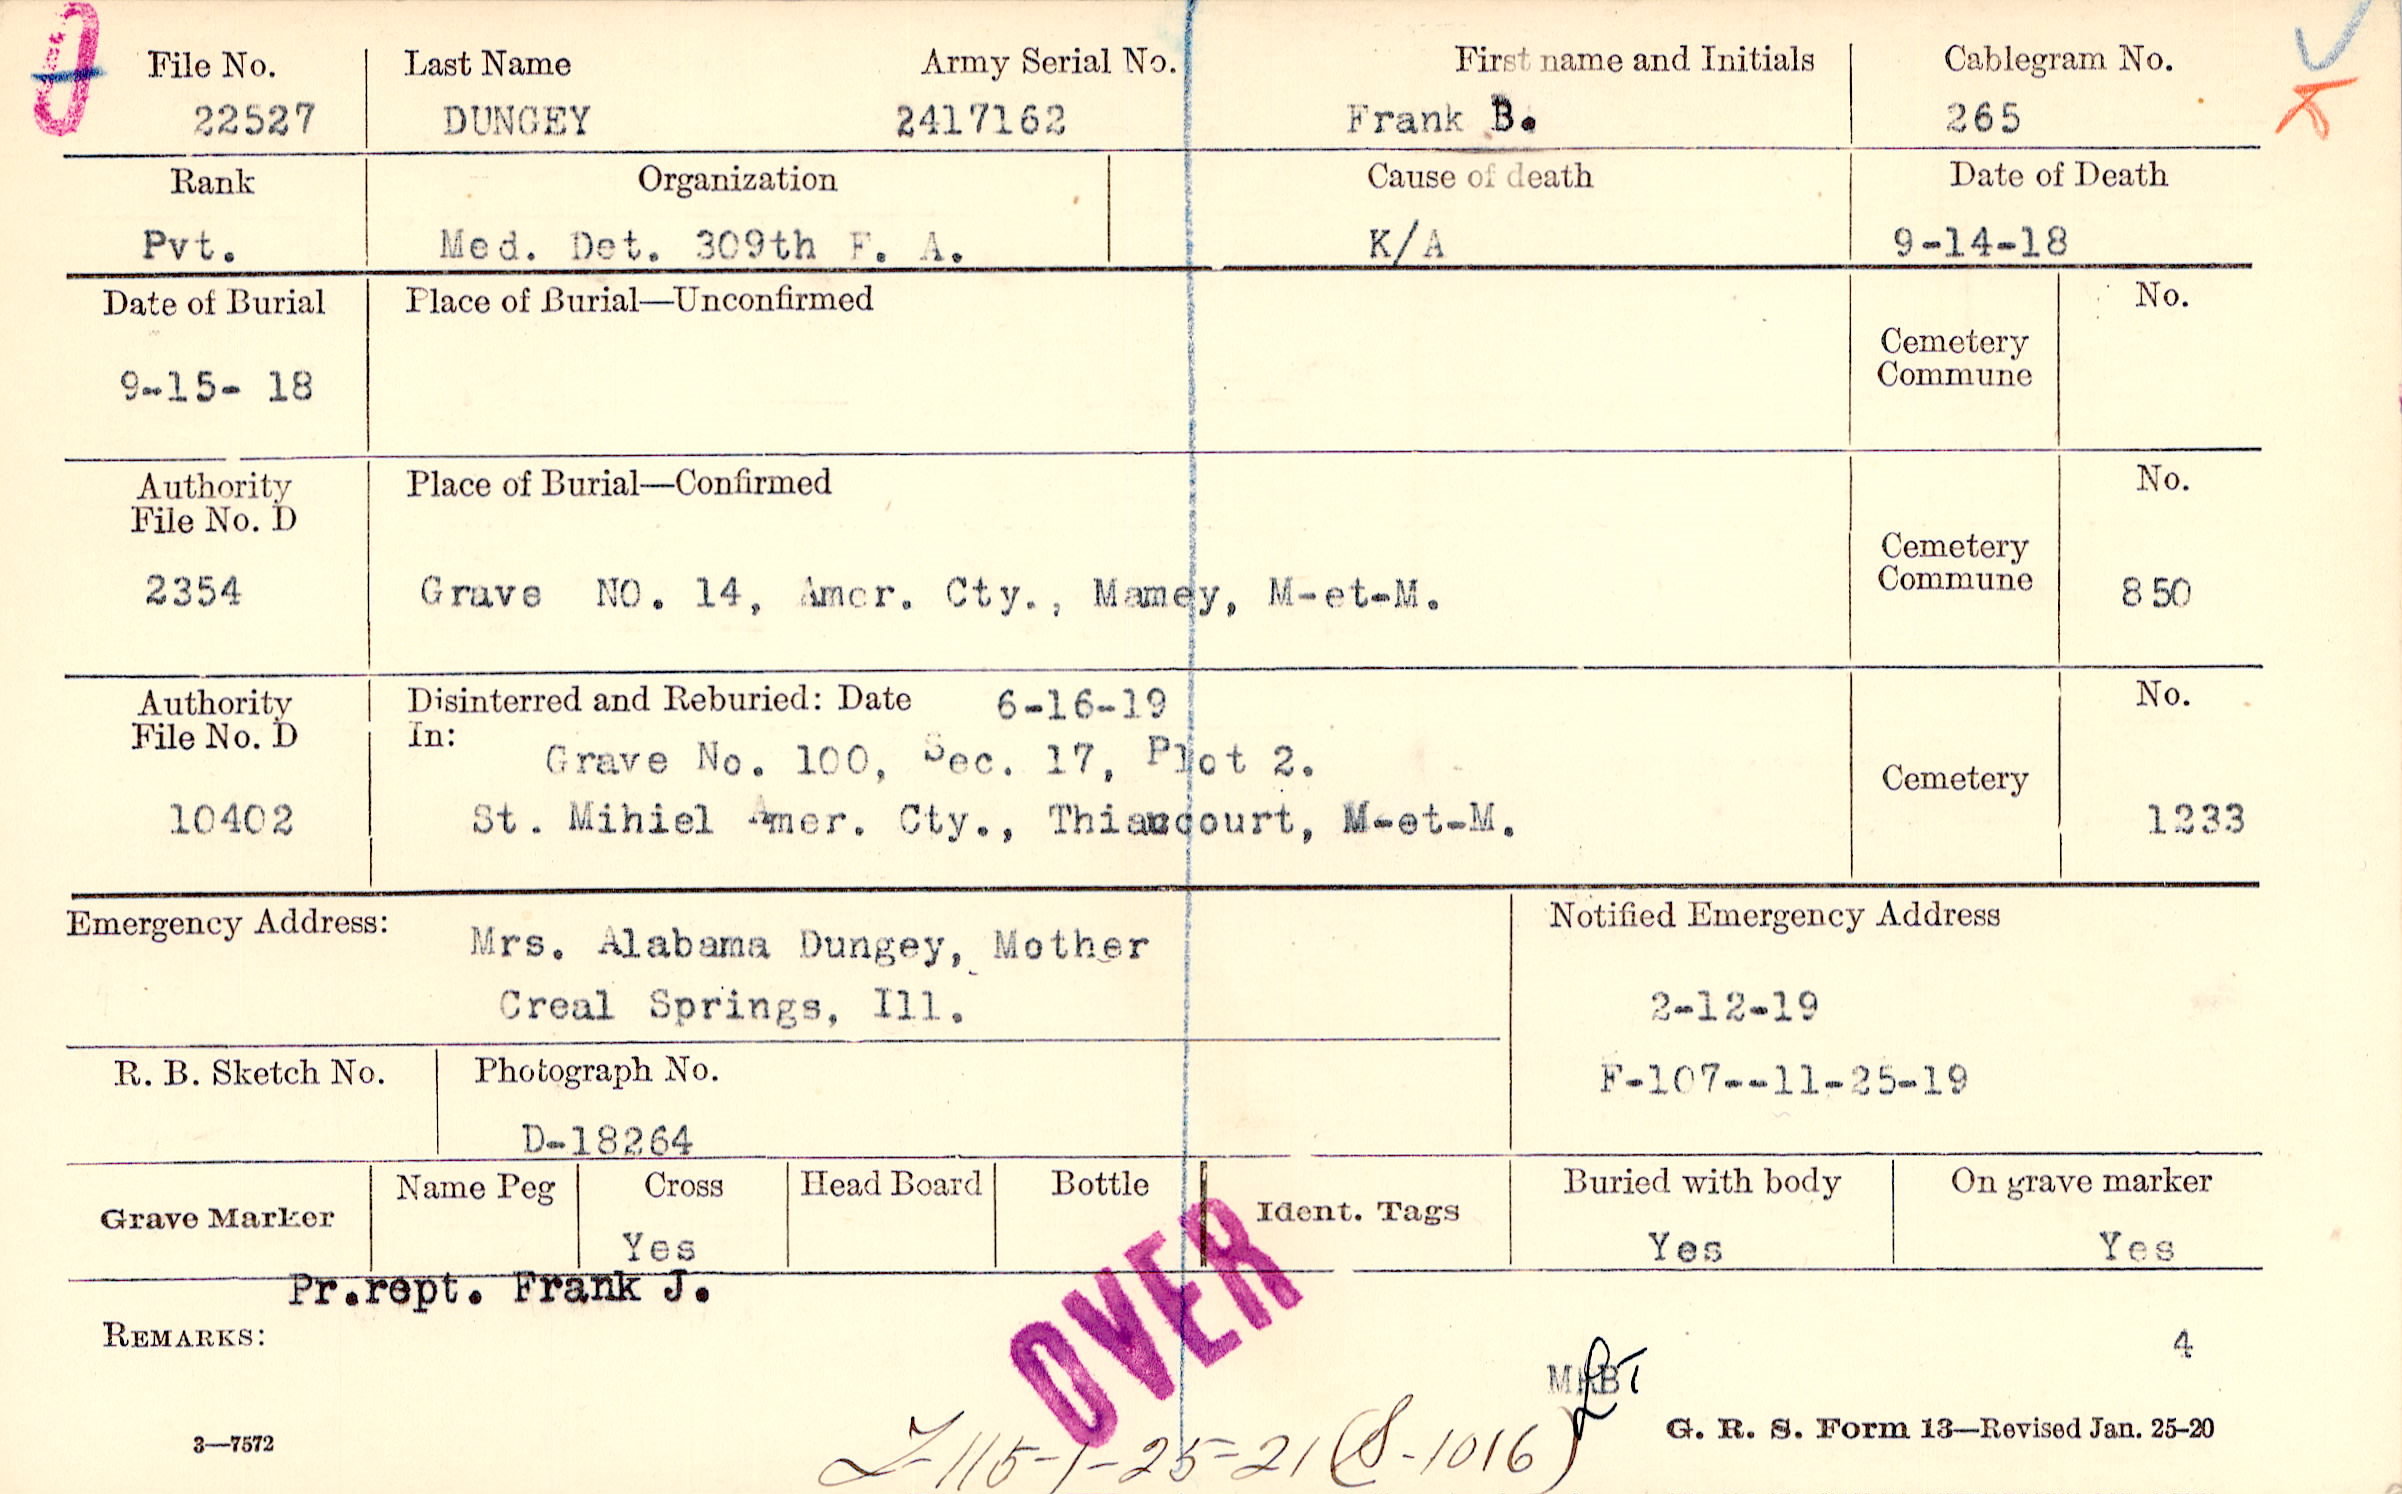 File No. Last Name Army Serial No. First name and Initials Cablegram No.
22527 DUNGEY 2417162 Frank B. 265
Rank Organization Cause of death Date of Death
Pvt. Med. Det. 309th F. A. K/A 9-14-18
Date of Burial Place of Burial—Unconfirmed No.
Cemetery
Commune
9-15- 18
Authority Place of Burial—Confirmed No.
File No. D
Cemetery
Commune
2354 Grave NO. 14, Amer. Cty., Mamey, M-et-M. 850
Authority Disinterred and Reburied: Date 6-16-19 No.
File No. D In:
Grave No. 100, Sec. 17, Plot 2.
Cemetery
10402 St. Mihiel Amer. Cty., Thiaucourt, M-et-M. 1233
Emergency Address: Notified Emergency Address
Mrs. Alabama Dungey, Mother
Creal Springs, Ill. 2-12-19
R. B. Sketch No. Photograph No. F-107--11-25-19
D-18264
Grave Marker Name Peg Cross Head Board Bottle Ident. Tags Buried with body On grave marker
Yes Yes Yes
Pr.rept. Frank J.
REMARKS:
OVER
4
3—7572
G. R. S. Form 13—Revised Jan. 25-20
115-1-25-21 (S-1016)